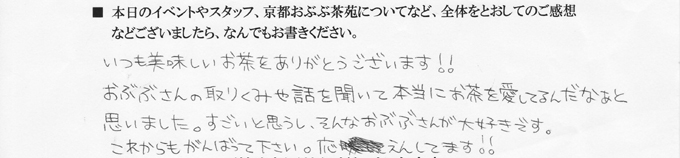 ■ 本日のイベントやスタッフ、京都おぶぶ茶苑についてなど、全体をとおしてのご感想
などございましたら、なんでもお書きください。
いつも美味しいお茶をありがとうございます!!
おぶぶさんの取りくみや話を聞いて本当にお茶を愛してるんだなぁと
思いました。すごいと思うし、そんなおぶぶさんが大好きです。
これからもがんばって下さい。応えんしてます!!